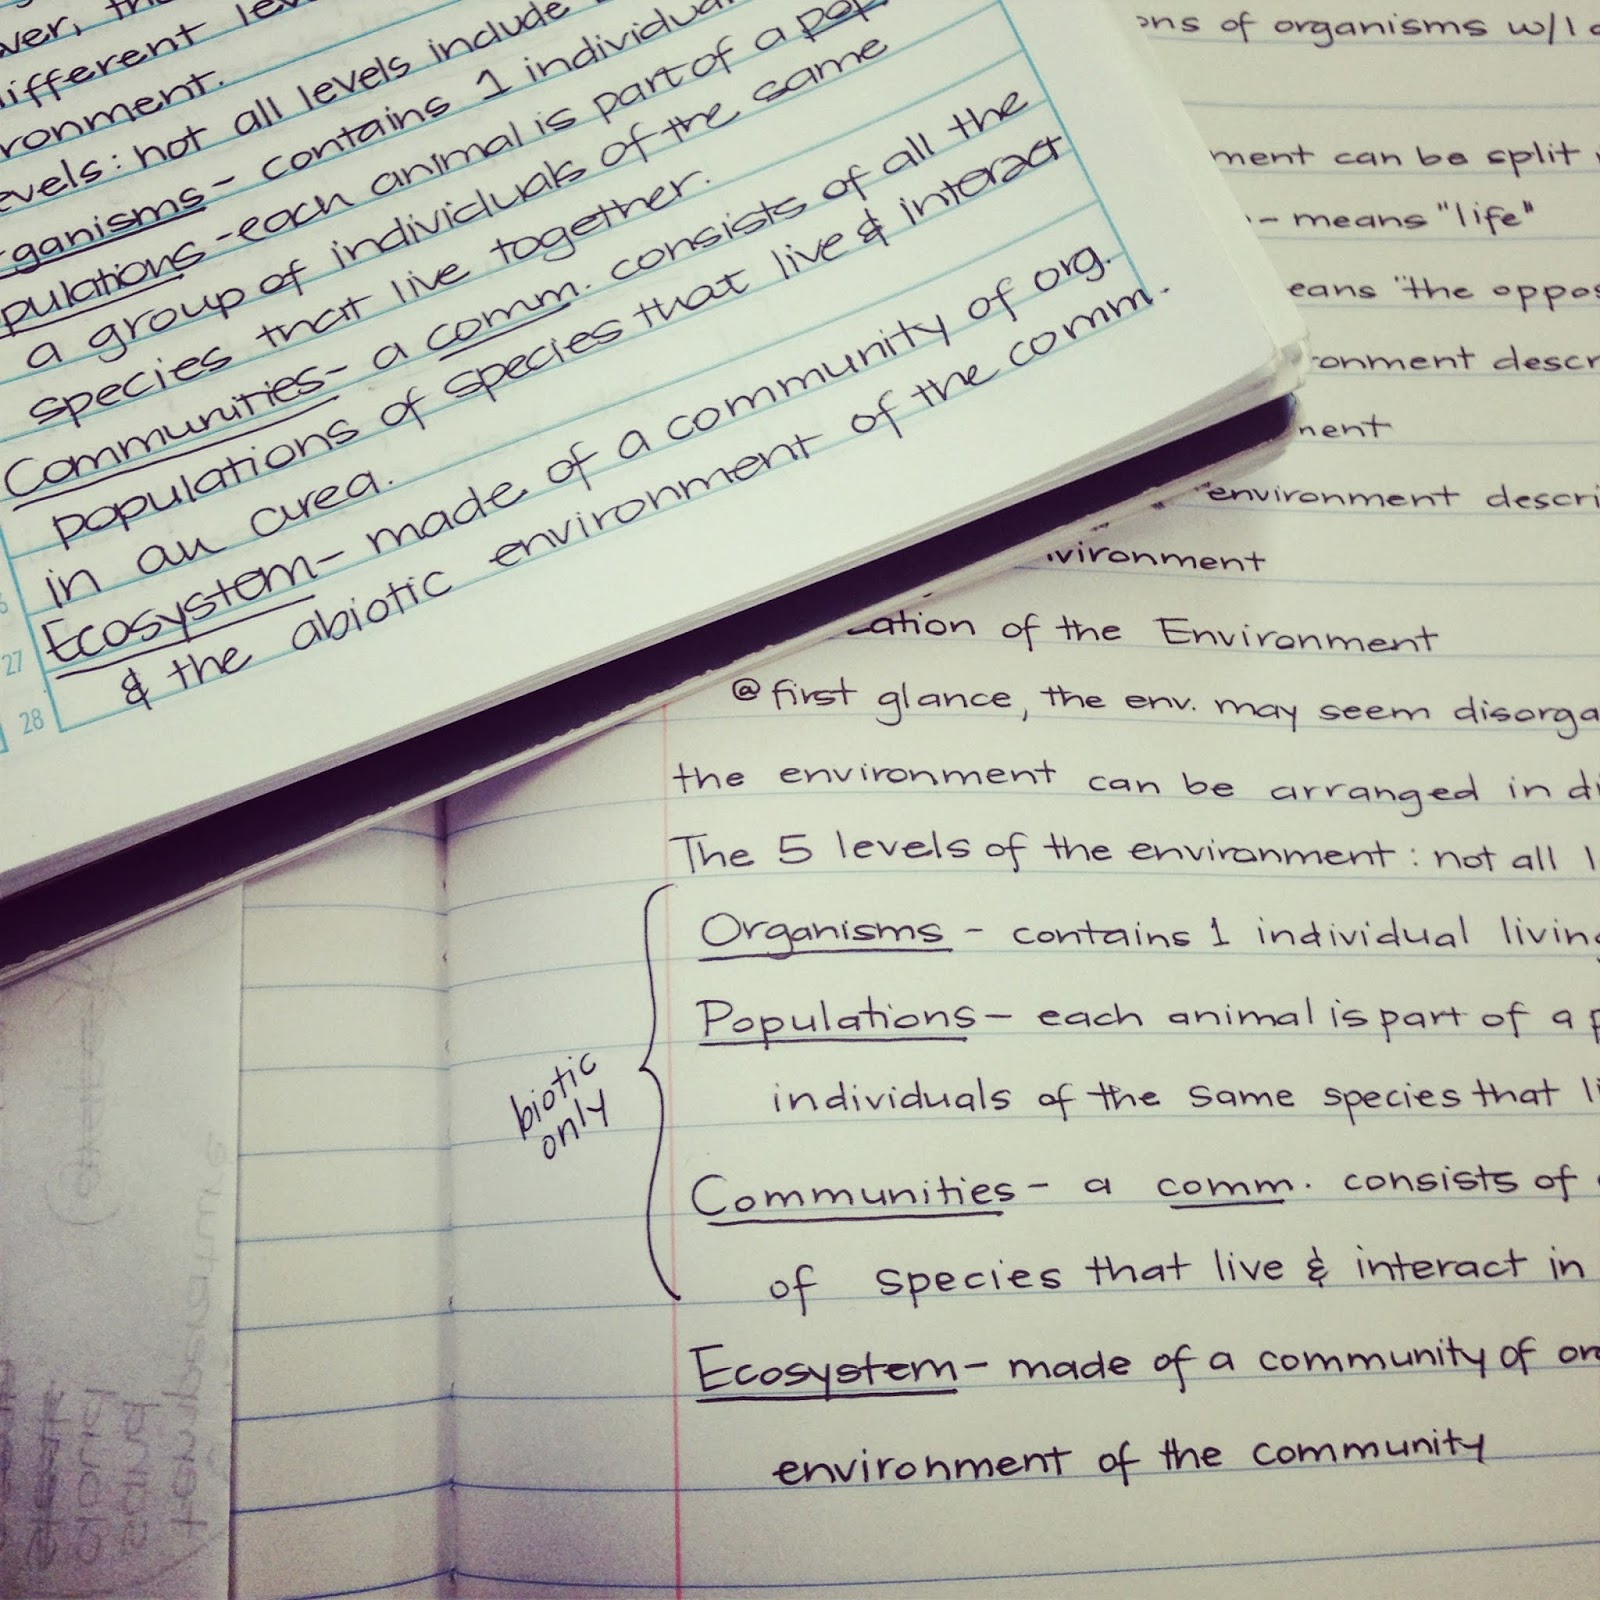 ver,
different
ronment.
evels: not all levels include
rganisms - contains 1 individual
pulations - each animal is part of a pop
a group of individuals of the same
species that live together.
Communities - a comm. consists of all the
populations of species that live & interact
in an area.
Ecosystem - made of a community of org.
& the abiotic environment of the comm.
27
28
ons of organisms w/
ment can be split
- means "life"
eans "the oppos
ronment descr
ment
environment descri
vironment
ation of the Environment
@ first glance, the env. may seem disorga
the environment can be arranged in di
The 5 levels of the environment: not all l
Organisms - contains 1 individual living
Populations - each animal is part of a p
individuals of the same species that li
Communities - a comm. consists of
of species that live & interact in
Ecosystem - made of a community of or
environment of the community
biotic
only